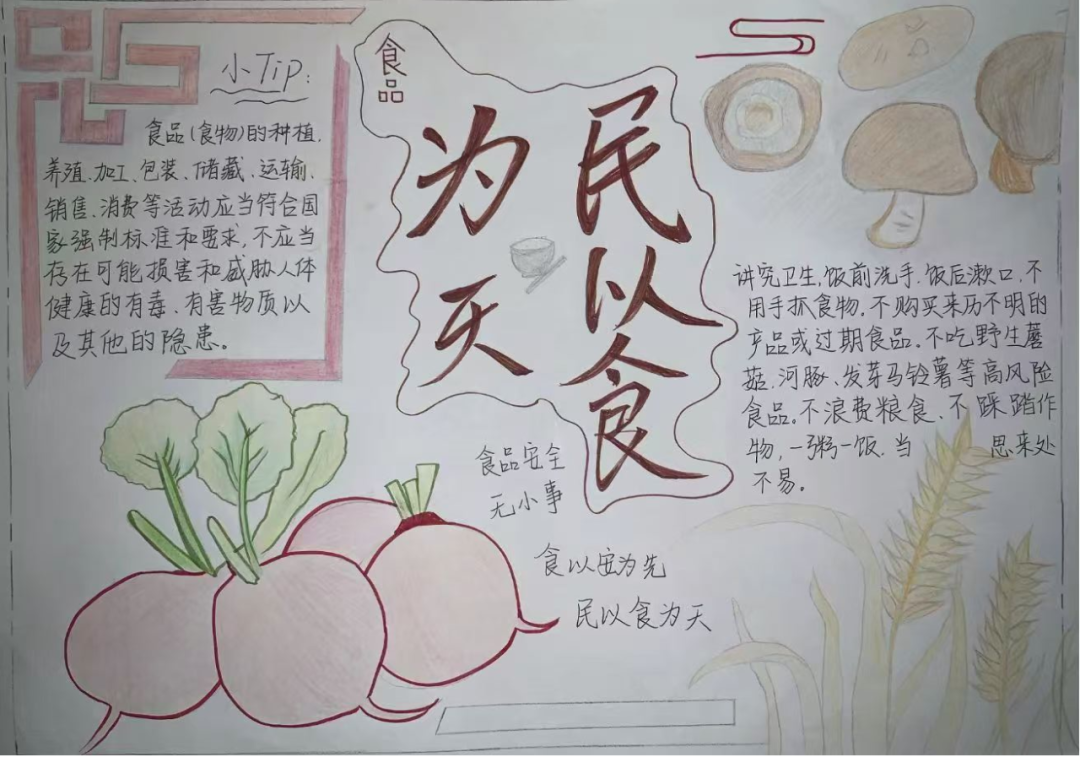 小Tip:
食品(食物)的种植、
养殖、加工、包装、储藏、运输、
销售、消费等活动应当符合国
家强制标准和要求,不应当
存在可能损害和威胁人体
健康的有毒、有害物质以
及其他的隐患。
食品
民以食
为天
讲究卫生,饭前洗手、饭后漱口、不
用手抓食物,不购买来历不明的
产品或过期食品。不吃野生蘑
菇、河豚、发芽马铃薯等高风险
食品。不浪费粮食、不踩踏作
物,一粥一饭,当思来处
不易。
食品安全
无小事
食以安为先
民以食为天